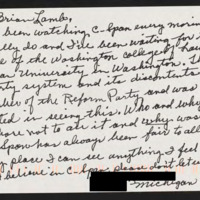 Brian Lamb,
been watching C-Span every morni
lly do and I've been waiting for
of the Washington college
an University in Washington. Th
ty system and its discontents
ber of the Reform Party and was
ted in seeing this. Who and why
not to air it and why was
Span has always been fair to all
place I can see anything I feel
believe in C-Span please don't let
Michigan